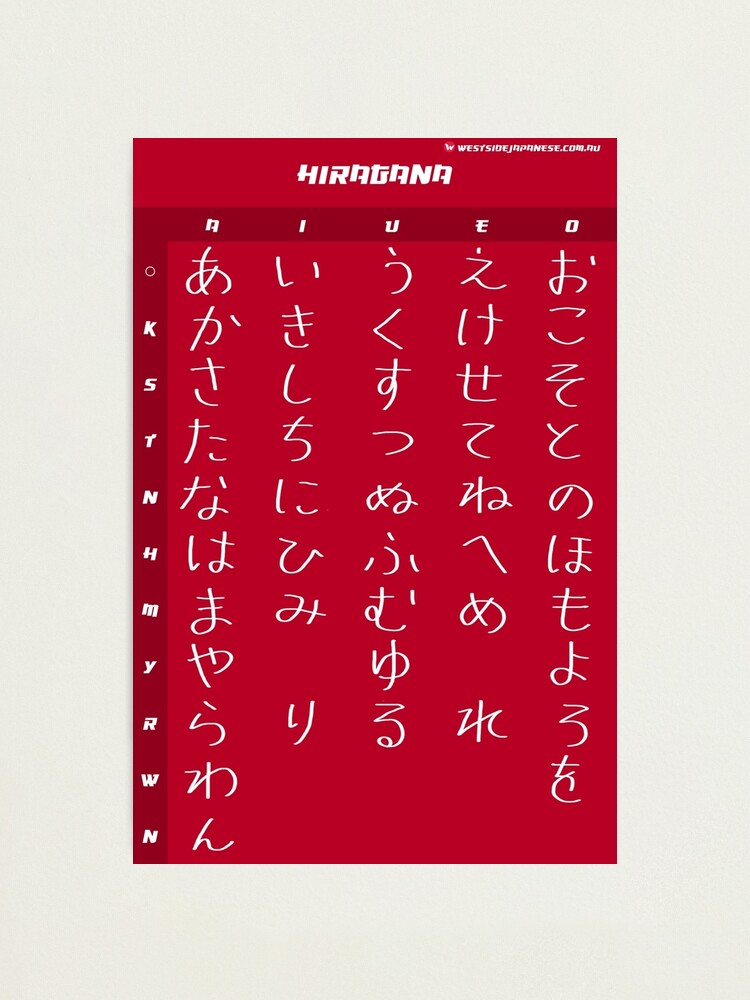 WESTSIDEJAPANESE.COM.AU
HIRAGANA
A I U E O
○ あ い う え お
K か き く け こ
S さ し す せ そ
T た ち つ て と
N な に ぬ ね の
H は ひ ふ へ ほ
M ま み む め も
Y や ゆ よ
R ら り る れ ろ
W わ を
N ん